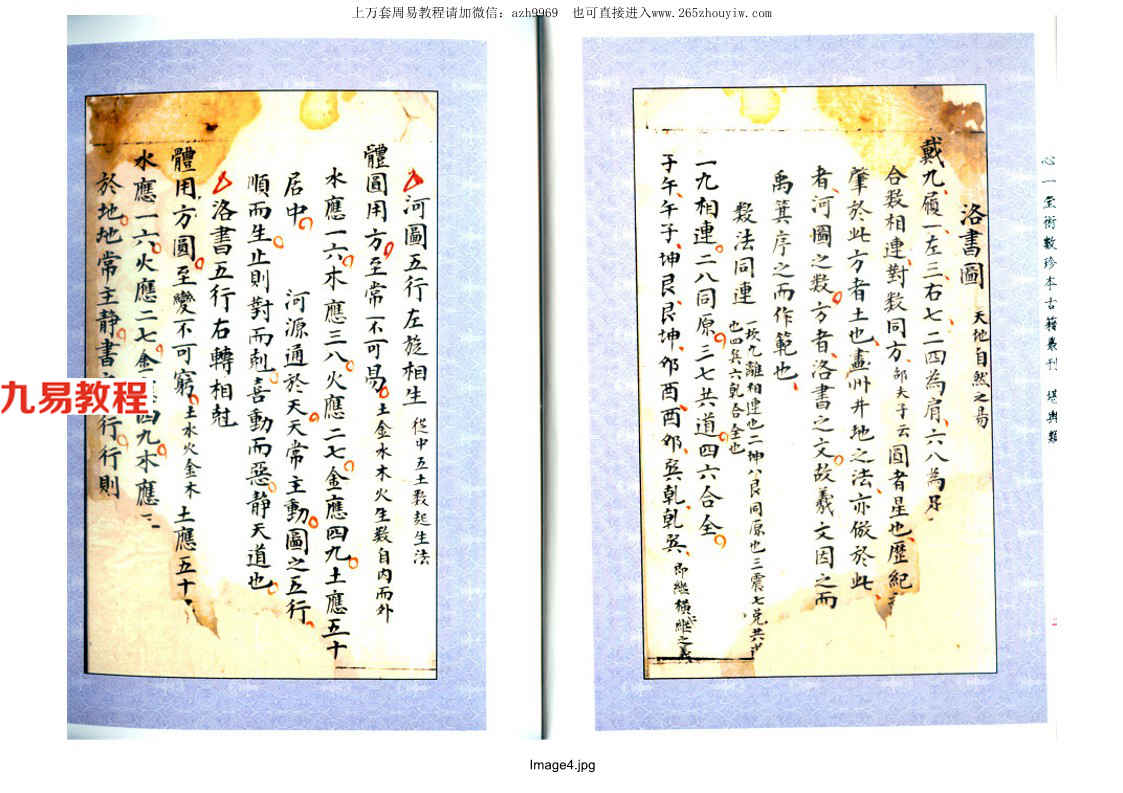 上万套周易教程请加微信：azh9969　也可直接进入www.265zhouyiw.com
心一堂術數珍本古籍叢刊　堪輿類
洛書圖　天地自然之易
戴九履一左三右七二四為肩六八為足
合数相連對数同方　邵夫子云　圓者星也歷紀
肇於此方者土也畫州井地之法亦倣於此
者河圖之数方者洛書之文故羲文因之而
禹箕序之而作範也
数法同連　一坎九離相連也二坤八艮同原也三震七兌共
也四巽六乾合全也
一九相連二八同原三七共道四六合全
子午午子坤艮艮坤卯酉酉卯巽乾乾巽　即
河圖五行左旋相生　從中五土数起生法
體圓用方至常不可易　土金水木火生数自内而外
水應一六木應三八火應二七金應四九土應五十
居中　河源通於天天常主動圖之五行
順而生止則對而剋喜動而惡静天道也
洛書五行右轉相尅
體用方圓至變不可窮　土水火金木　土應五十
水應一六火應二七金　四九木應三
於地地常主静書　行行則
九易教程
Image4.jpg